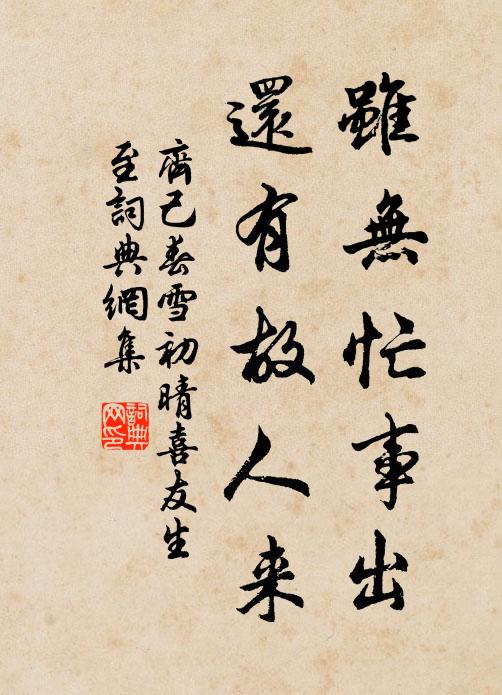 雖無忙事出
還有故人来
齊己春雪初晴喜友生
至詞典網集
詞典网印